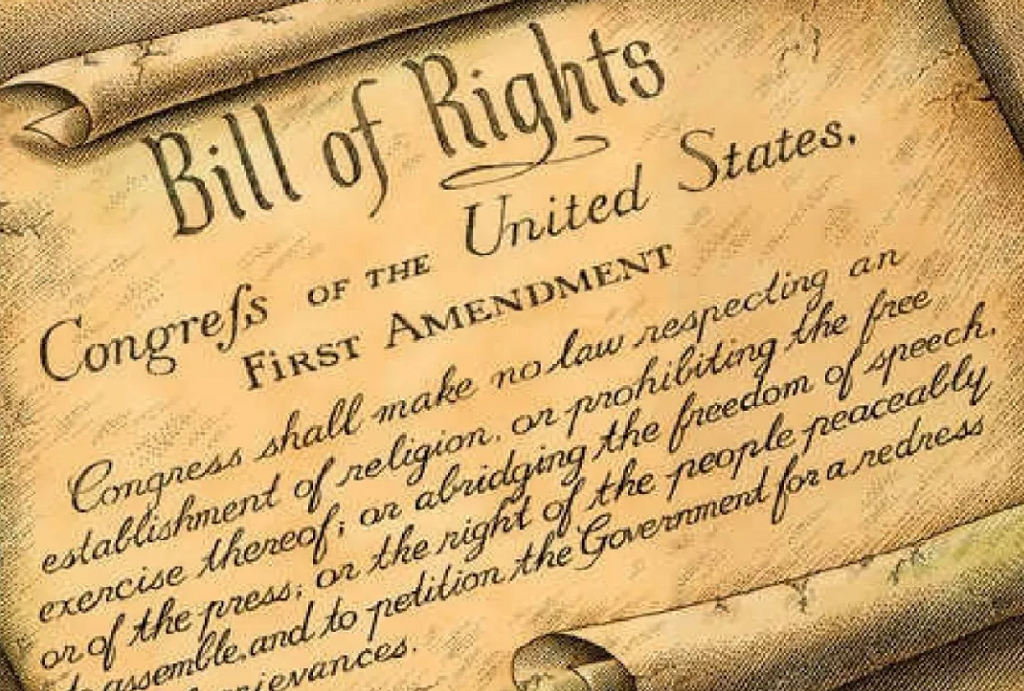 Bill of Rights
Congreſs OF THE United States.
FIRST AMENDMENT
Congress shall make no law respecting an
establishment of religion, or prohibiting the free
exercise thereof; or abridging the freedom of speech,
or of the press; or the right of the people peaceably
to assemble, and to petition the Government for a redress